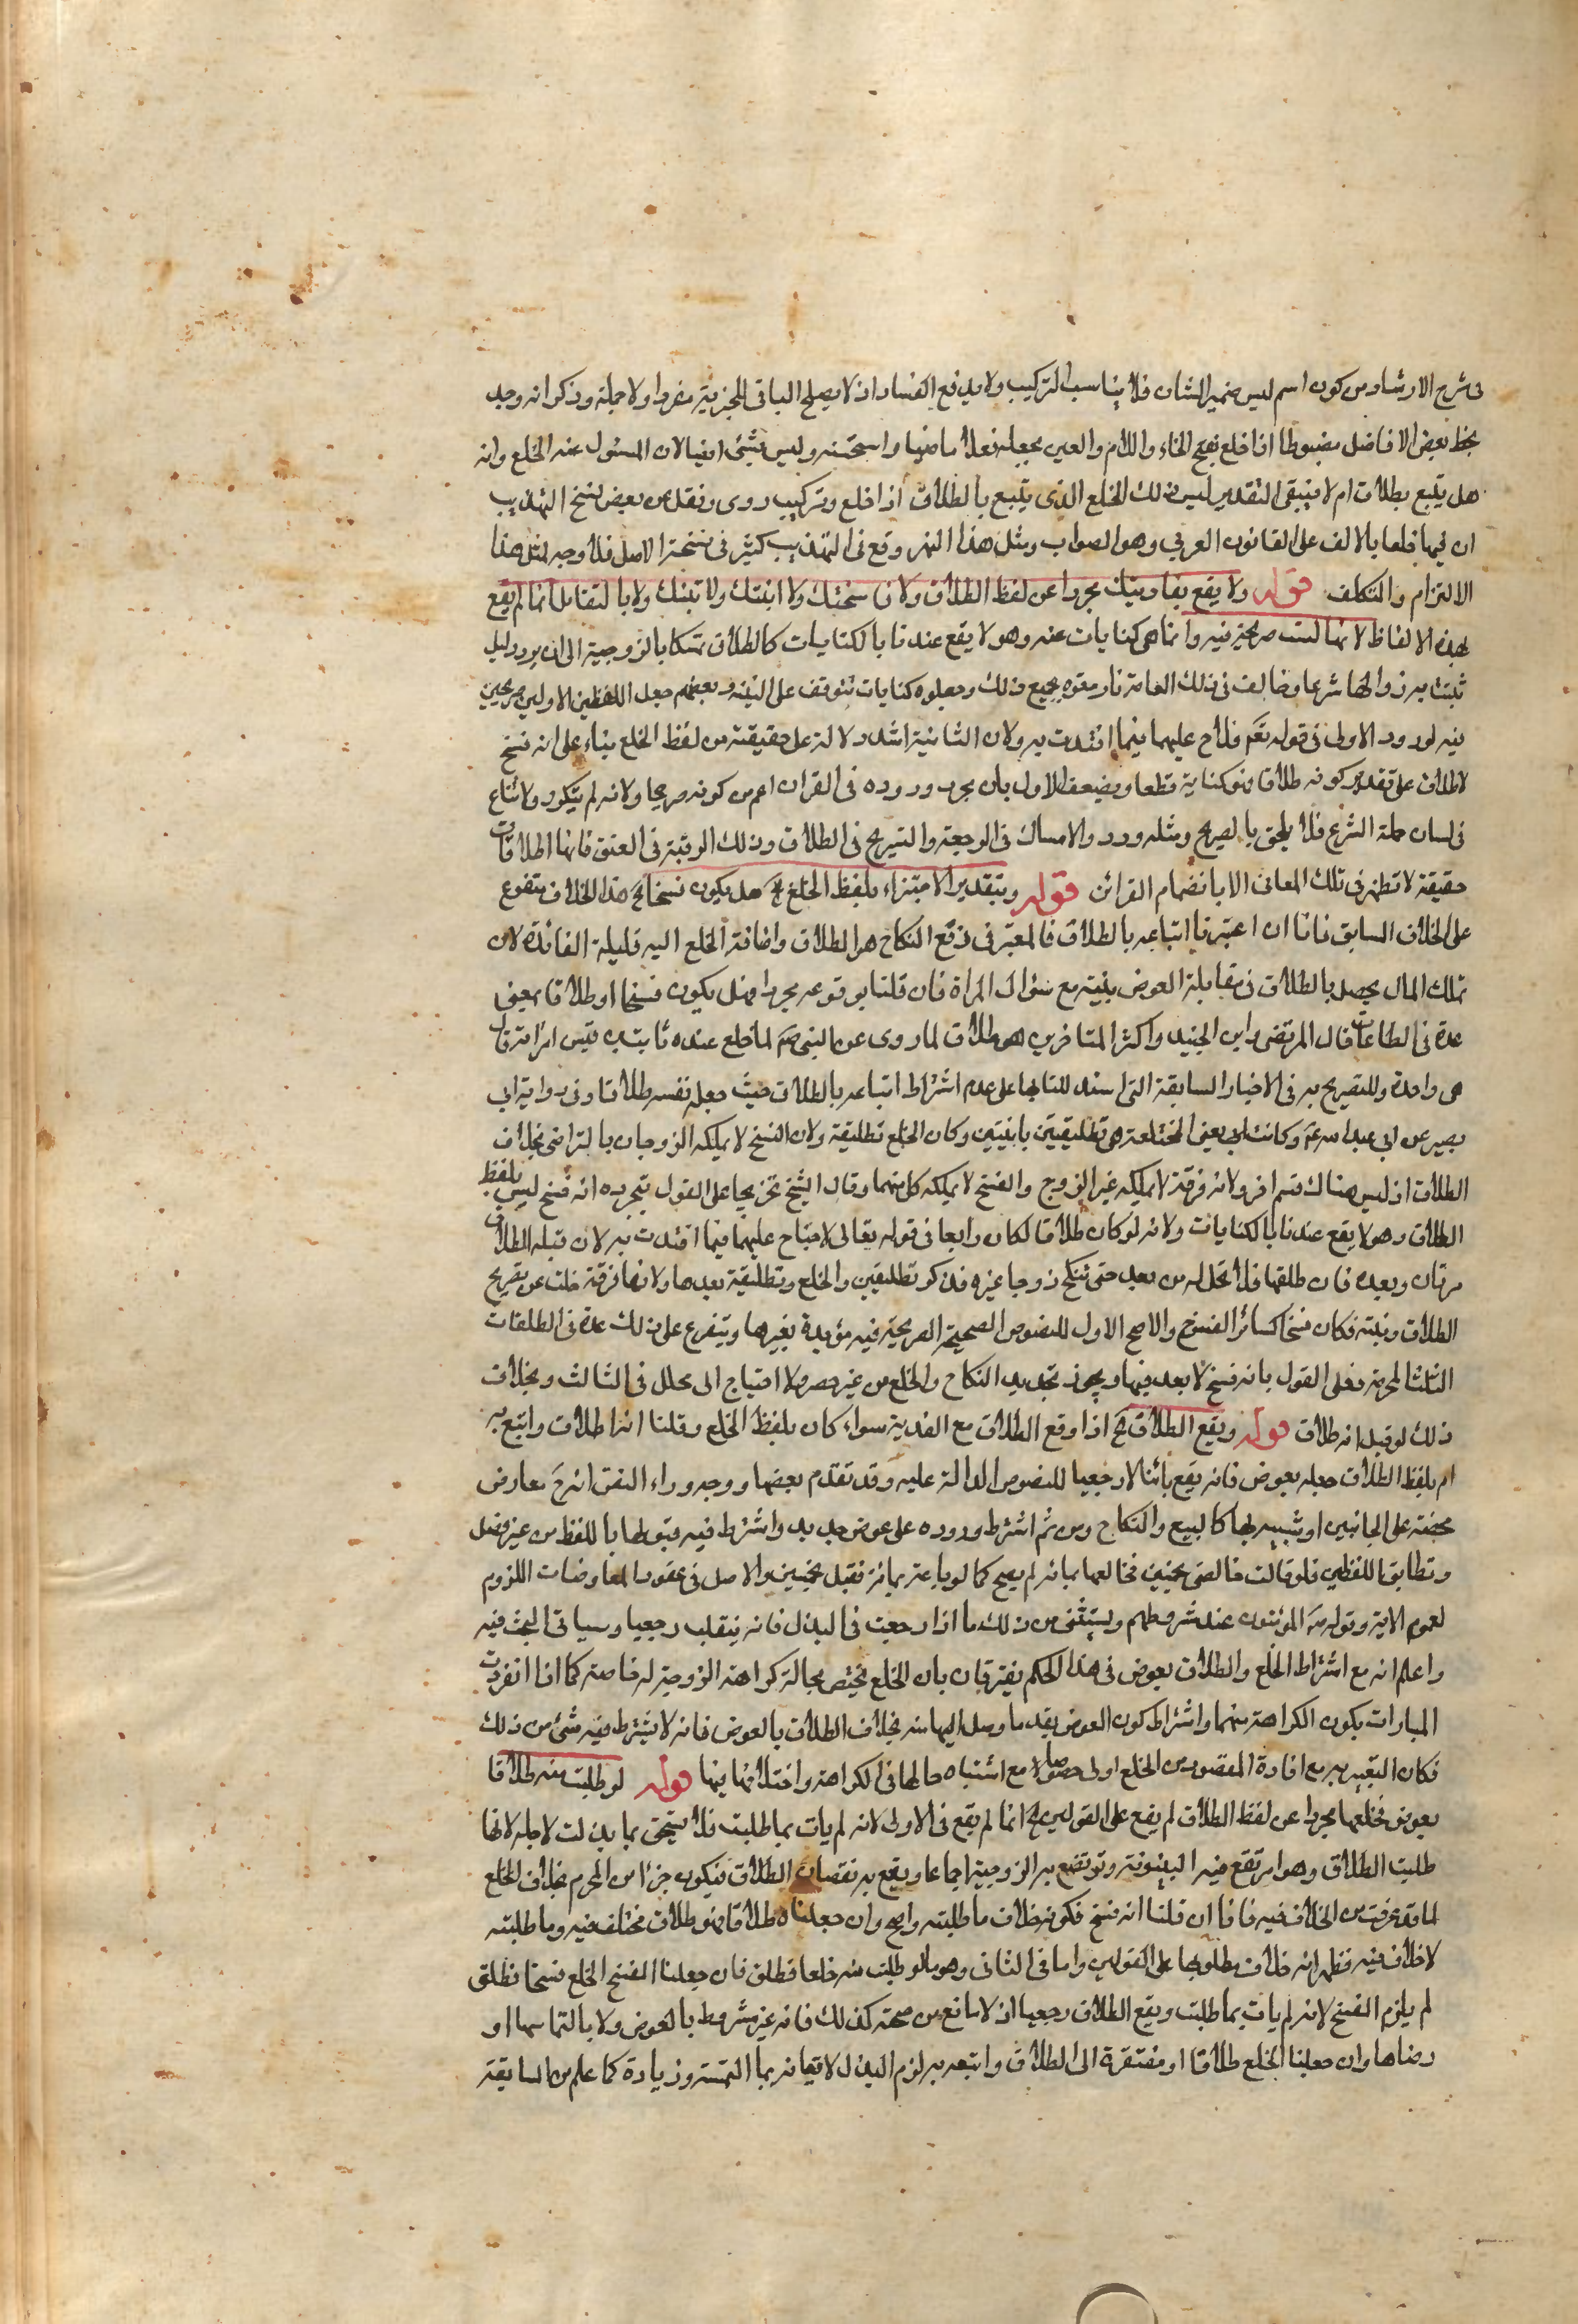 فى شرح الارشاد من كون اسم ليس ضمير الشان فلا يناسب التركيب ولا يدفع الفساد اذ لا يصلح الباقى للخبرية مفردا ولا جملة وذكر انه وجد
بخط بعض الافاضل مضبوطا اذا خلع بفتح الخاء واللام والعين بجعله فعلا ماضيا واستحسنه وليس بشئ ايضا لان المسئول عنه الخلع وانه
هل يتبع بطلاق ام لا فيبقى التقدير ليس ذلك الخلع الذى يتبع بالطلاق اذا خلع وتركيب روى ونقل عن بعض نسخ التهذيب
ان فيها خلعا بالالف على القانون العربي وهو الصواب ومثل هذا وقع فى التهذيب كثير فى نسخة الاصل فلا وجه لمثل هذا
الالتزام والتكلف قوله ولا يقع بفاديتك مجردا عن لفظ الطلاق ولا فاسختك ولا ابنتك ولا بتتك ولا بالتقايل انما لم يقع
بهذه الالفاظ لانها ليست صريحة فيه وانما هى كنايات عنه وهو لا يقع عندنا بالكنايات كالطلاق تمسكا بالزوجية الى ان يرد دليل
ثبت به زوالها شرعا وخالف فى ذلك العامة فاوقعوه بجميع ذلك وجعلوه كنايات تتوقف على النية وبعضهم جعل اللفظين الاولين صريحين
فيه لورود الاولى فى قوله تعالى فلا جناح عليهما فيما افتدت به ولان الثانية اشد دلالة على حقيقته من لفظ الخلع بناء على انه فسخ
لا طلاق على تقدير كونه طلاقا فهو كناية قطعا ويضعف الاول بان مجرد وروده فى القران اعم من كونه صريحا ولانه لم يتكرر ولا شاع
فى لسان حملة الشرع فلا يلحق بالصريح ومثله ورد والامساك فى الرجعة والتسريح فى الطلاق وفك الرقبة فى العتق فانها اطلاقات
حقيقة لا تظهر فى تلك المعانى الا بانضمام القرائن قوله وبتقدير الاجتزاء بلفظ الخلع هل يكون فسخا هذا الخلاف متفرع
على الخلاف السابق فانا ان اعتبرنا اتباعه بالطلاق فالمعتبر فى رفع النكاح هو الطلاق واضافة الخلع اليه قليلة الفائدة لان
تملك المال يحصل بالطلاق فى مقابلة العوض بنيته مع سؤال المراة فان قلنا بوقوعه مجردا فهل يكون فسخا او طلاقا بمعنى
عده فى الطلقات قال المرتضى وابن الجنيد واكثر المتاخرين هو طلاق لما روى عن النبى ص لما خلع عنده ثابت بن قيس امراته قال
هى واحدة وللتصريح به فى الاخبار السابقة التى استدللنا بها على عدم اشتراط اتباعه بالطلاق حيث جعله نفسه طلاقا وفى رواية ابى
بصير عن ابى عبد الله ع وكانت يعنى المختلعة هى تطليقتين باينتين وكان الخلع تطليقة ولان الفسخ لا يملكه الزوجان بالتراضى بخلاف
الطلاق اذ ليس هناك قسم اخر ولانه فرقة لا يملكه غير الزوج والفسخ لا يملكه كل منهما وقال الشيخ تخريجا على القول بتجرده انه فسخ ليس بلفظ
الطلاق وهو لا يقع عندنا بالكنايات ولانه لو كان طلاقا لكان رابعا فى قوله تعالى لا جناح عليهما فيما افتدت به لان قبله الطلاق
مرتان وبعده فان طلقها فلا تحل له من بعد حتى تنكح زوجا غيره فذكر تطليقتين والخلع وتطليقة بعدها ولانها فرقة خلت عن تصريح
الطلاق ونيته فكان فسخا كسائر الفسوخ والاصح الاول للنصوص الصحيحة الصريحة فيه مؤيدة بغيرها ويتفرع على ذلك عده فى الطلقات
الثلث المحرمة فعلى القول بانه فسخ لا يعد فيها ويجوز تجديد النكاح والخلع من غير حصر ولا احتياج الى محلل فى الثالث وبخلاف
ذلك لو قيل انه طلاق قوله ويقع الطلاق اذا وقع الطلاق مع الفدية سواء كان بلفظ الخلع وقلنا انه طلاق واتبع به
ام بلفظ الطلاق جعله بعوض فانه يقع بائنا لا رجعيا للنصوص الدالة عليه وقد تقدم بعضها ووجه وراء النص انه معاوضة
محضة على الجانبين او شبيه بها كالبيع والنكاح ومن ثم اشترط وروده على عوض جديد واشترط فيه قبولها باللفظ من غير فصل
وتطابق اللفظين فلو قالت خالعنى بخمسين فخالعها بمائة لم يصح كما لو باعه بمائة فقبل بخمسين والاصل فى عقود المعاوضات اللزوم
لعموم الاية وقوله ص المؤمنون عند شروطهم ويستثنى من ذلك ما اذا رجعت فى البذل فانه ينقلب رجعيا وسياتى البحث فيه
واعلم انه مع اشتراط الخلع والطلاق بعوض فى هذا الحكم يفترقان بان الخلع يختص بحالة كراهة الزوجة له خاصة كما اذا انفردت
المبارات بكون الكراهة منهما واشتراط كون العوض بقدر ما وصل اليها منه بخلاف الطلاق بالعوض فانه لا يشترط فيه شئ من ذلك
فكان التعبير به مع افادة المقصود من الخلع اولى خصوصا مع اشتباه حالهما فى الكراهة واختلافهما فيها قوله لو طلبت منه طلاقا
بعوض فخلعها مجردا عن لفظ الطلاق لم يقع على القولين انما لم يقع فى الاولى لانه لم يات بما طلبت فلا يستحق بما بذلت لاجله لانها
طلبت الطلاق وهو امر تقع فيه البينونة وترتفع به الزوجية اجماعا ويقع به نقصان الطلاق فيكون جزا من المحرم بخلاف الخلع
لما قد عرفت من الخلاف فيه فانا ان قلنا انه فسخ فكونه خلاف ما طلبته واضح وان جعلناه طلاقا فهو طلاق مختلف فيه وما طلبته
لا خلاف فيه فظهر انه خلاف مطلوبها على القولين واما فى الثانى وهو ما لو طلبت منه خلعا فطلق فان جعلنا الخلع فسخا فطلق
لم يلزم الفسخ لانه لم يات بما طلبت ويقع الطلاق رجعيا اذ لا مانع من صحته كذلك فانه غير مشروط بالعوض ولا بالتماسها او
رضاها وان جعلنا الخلع طلاقا او مفتقرة الى الطلاق واتبعه به لزم البذل لاتيانه بما التمسته وزيادة كما علم من السابقة